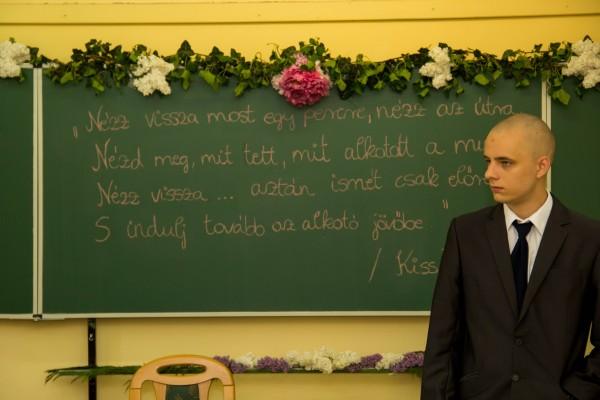 „Nézz vissza most egy percre, nézz az útra,
Nézd meg, mit tett, mit alkotott a
Nézz vissza ... aztán ismét csak
S indulj tovább az alkotó jövőbe"
/ Kiss